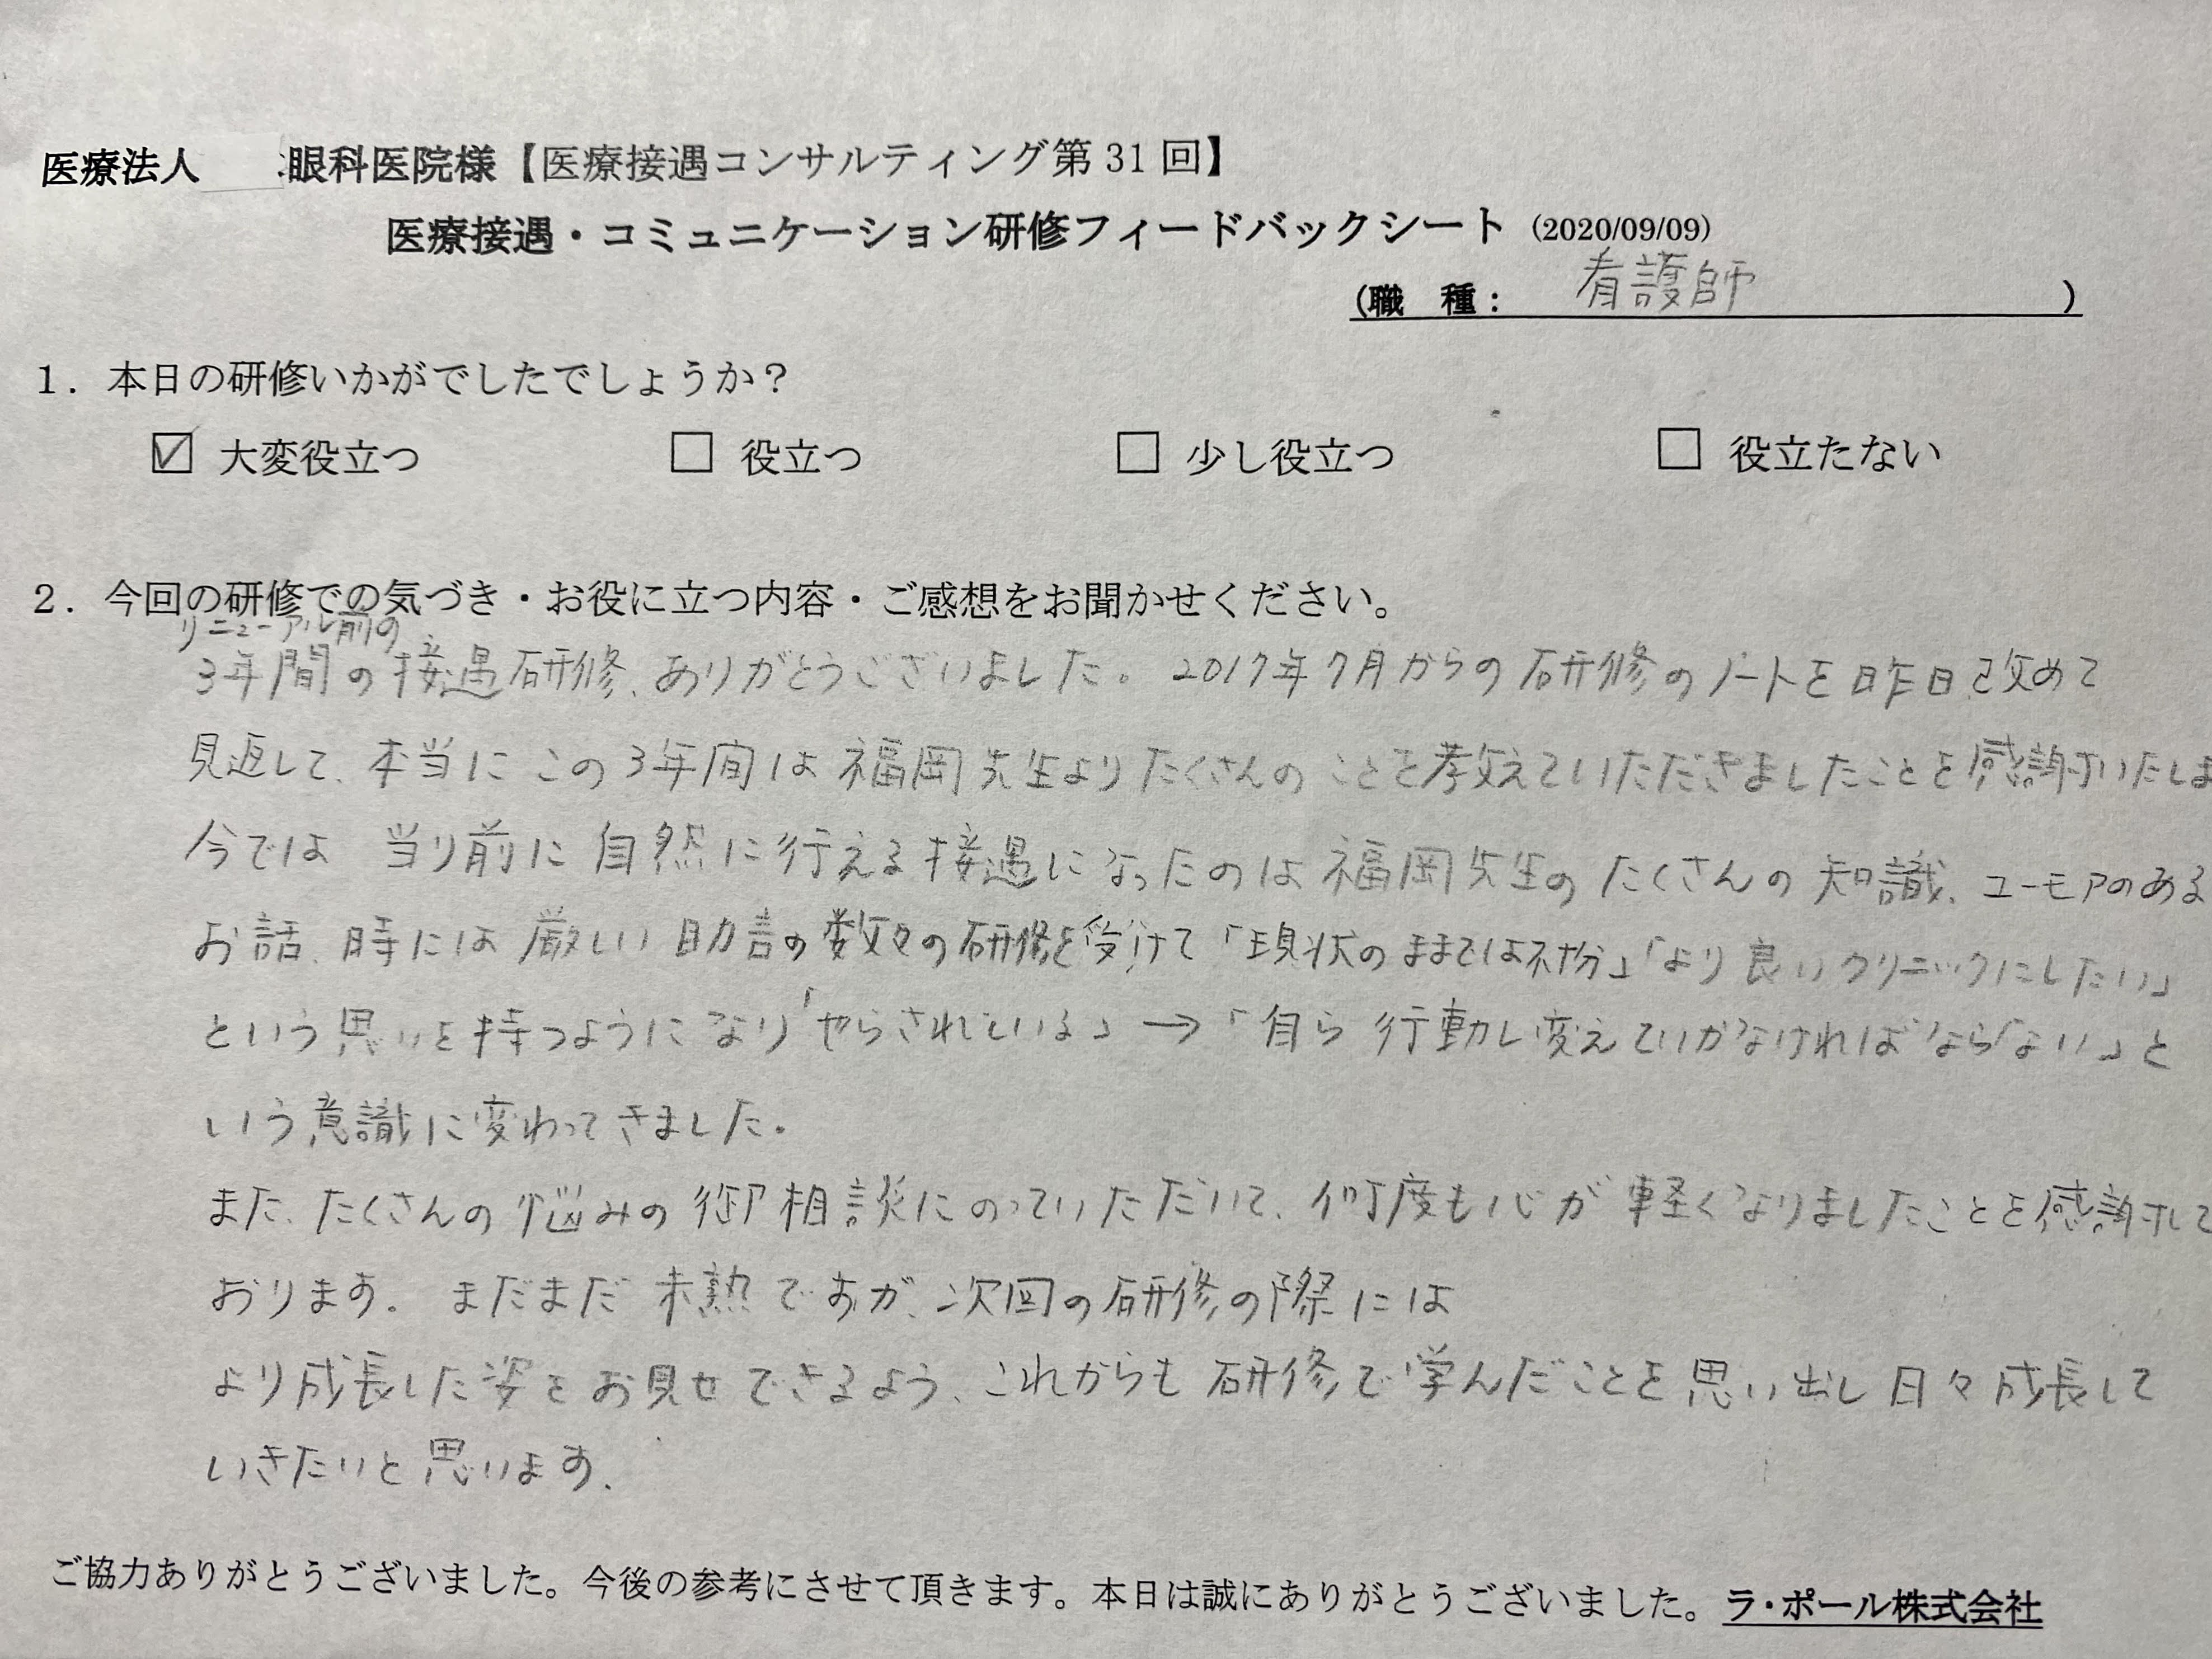 医療法人 眼科医院様【医療接遇コンサルティング第31回】
医療接遇・コミュニケーション研修フィードバックシート (2020/09/09)
(職 種: 看護師 )
1. 本日の研修いかがでしたでしょうか?
☑ 大変役立つ □ 役立つ □ 少し役立つ □ 役立たない
2. 今回の研修での気づき・お役に立つ内容・ご感想をお聞かせください。
リニューアル前の
3年間の接遇研修、ありがとうございました。2017年7月からの研修のノートを昨日改めて
見返して、本当にこの3年間は福岡先生よりたくさんのことを教えていただきましたことを感謝いたしま
今では 当り前に自然に行える接遇になったのは福岡先生のたくさんの知識、ユーモアのある
お話、時には厳しい助言の数々の研修を受けて「現状のままでは不十分」「より良いクリニックにしたい」
という思いを持つようになり「やらされている」→「自ら行動し変えていかなければならない」と
いう意識に変わってきました。
また、たくさんの悩みの御相談にのっていただいて、何度も心が軽くなりましたことを感謝して
おります。まだまだ未熟ですが、次回の研修の際には
より成長した姿をお見せできるよう、これからも研修で学んだことを思い出し日々成長して
いきたいと思います。
ご協力ありがとうございました。今後の参考にさせて頂きます。本日は誠にありがとうございました。ラ・ポール株式会社